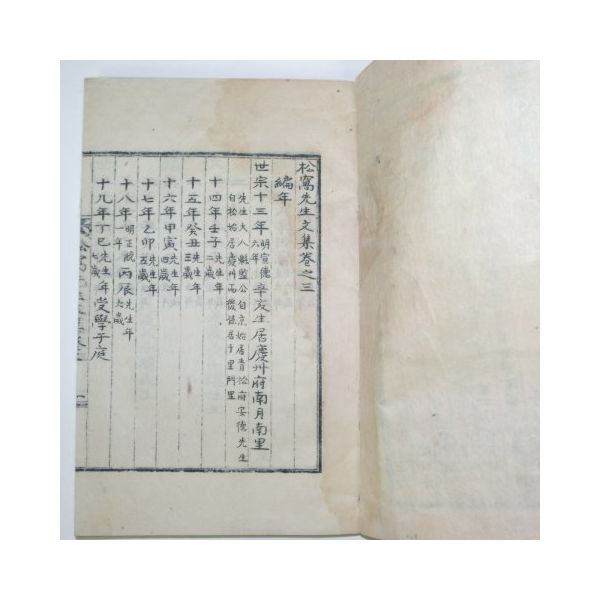 松窩先生文集卷之三
編年
世宗十三年明宣德六年辛亥生居慶州府南月南里
先生大人縣監公自京始居青松府安德先生
自松始居慶州而機張居于里門里
十四年壬子先生年二歲
十五年癸丑先生年三歲
十六年甲寅先生年四歲
十七年乙卯先生年五歲
十八年明正統一年丙辰先生年六歲
十九年丁巳先生年七歲受學于庭